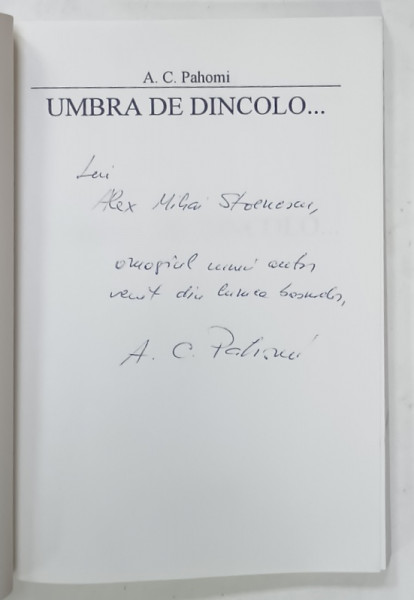 A. C. Pahomi
UMBRA DE DINCOLO...
Lui
Alex Mihai Stoenescu,
omagiul unui autor
venit din lumea basmelor,
A. C. Pahomi